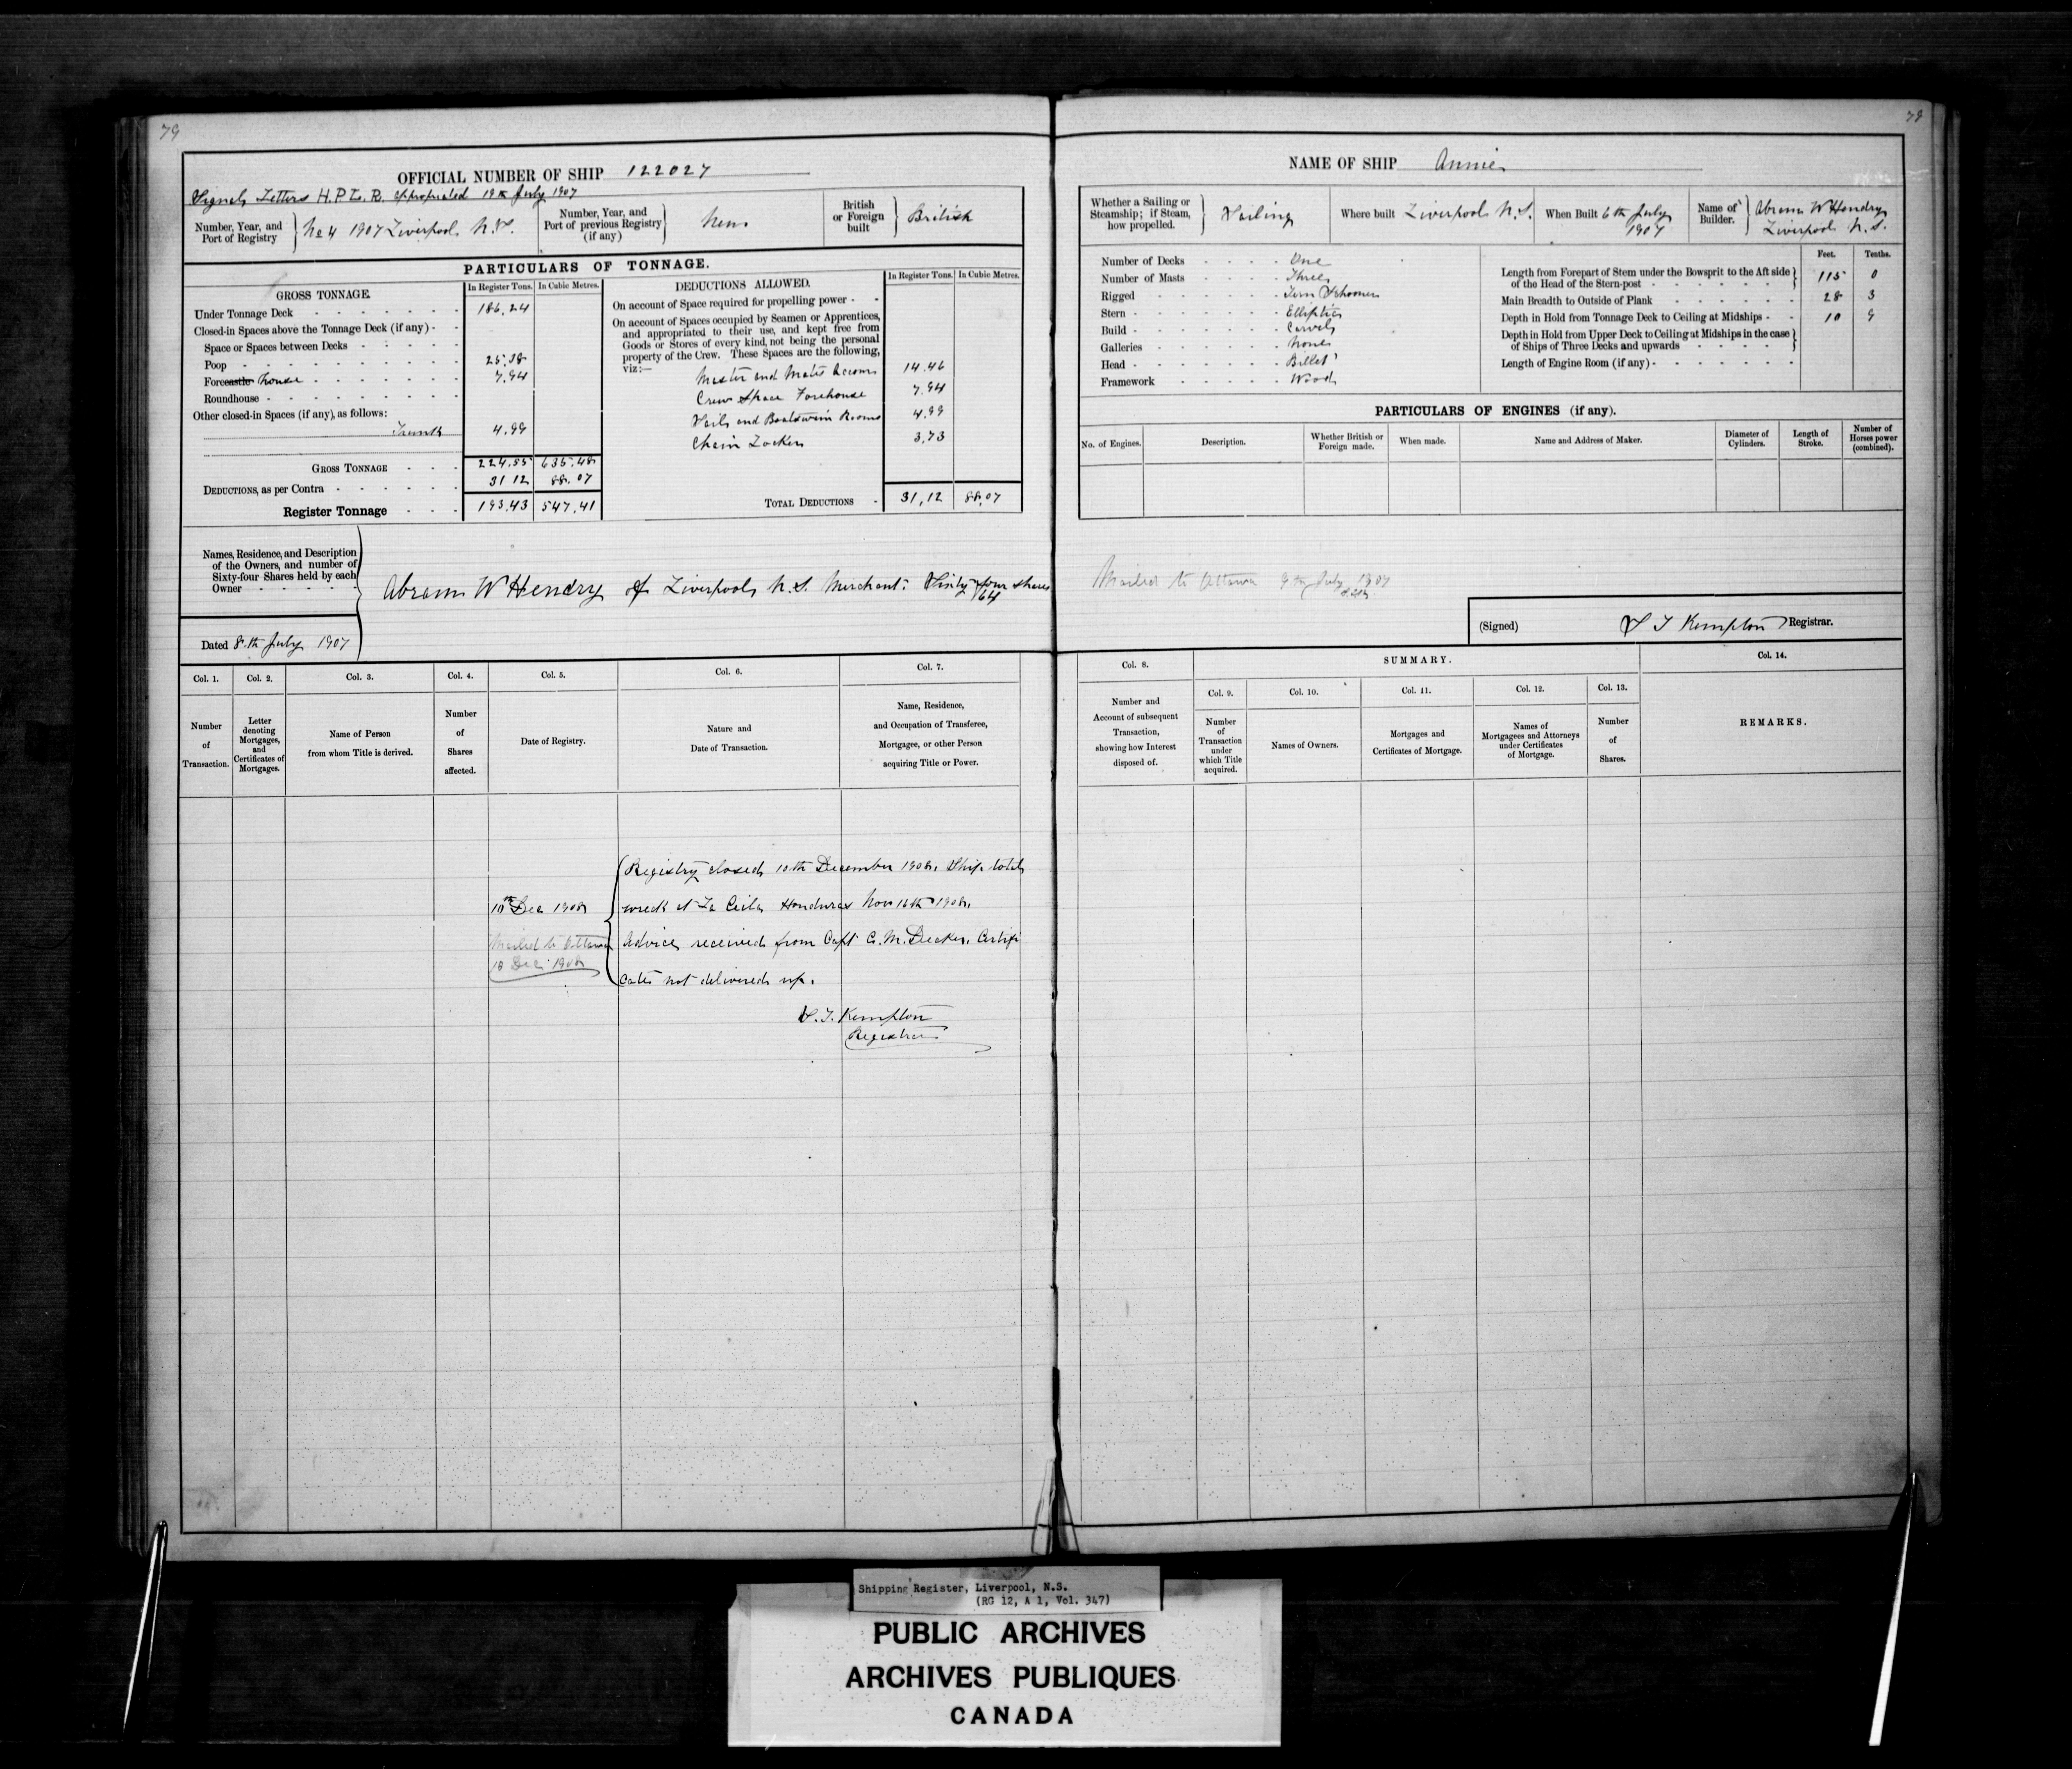 79
OFFICIAL NUMBER OF SHIP 122027
Signal Letters H.P.L.R. appropriated 19th July 1907
Number, Year, and Port of Registry
No 4 1907 Liverpool N.S.
Number, Year, and Port of previous Registry (if any)
New
British or Foreign built
British
PARTICULARS OF TONNAGE.
GROSS TONNAGE.
In Register Tons. In Cubic Metres.
Under Tonnage Deck 186.24
Closed-in Spaces above the Tonnage Deck (if any)
Space or Spaces between Decks
Poop 25.38
Forecastle House 7.94
Roundhouse
Other closed-in Spaces (if any), as follows:
Trunk 4.99
GROSS TONNAGE 224.55 635.48
DEDUCTIONS, as per Contra 31 12 88.07
Register Tonnage 193.43 547.41
DEDUCTIONS ALLOWED.
In Register Tons. In Cubic Metres.
On account of Space required for propelling power
On account of Spaces occupied by Seamen or Apprentices,
and appropriated to their use, and kept free from
Goods or Stores of every kind, not being the personal
property of the Crew. These Spaces are the following,
viz:—
Master and Mates Accom 14.46
Crew Space Forehouse 7.94
Sails and Boatswain Rooms 4.99
Chain Locker 3.73
TOTAL DEDUCTIONS 31,12 88,07
Names, Residence, and Description
of the Owners, and number of
Sixty-four Shares held by each
Owner
Abram W Hendry of Liverpool N.S. Merchant: Sixty four 64 shares
Dated 8th July 1907
Col. 1. Col. 2. Col. 3. Col. 4. Col. 5. Col. 6. Col. 7.
Number of Transaction.
Letter denoting Mortgages, and Certificates of Mortgages.
Name of Person from whom Title is derived.
Number of Shares affected.
Date of Registry.
Nature and Date of Transaction.
Name, Residence, and Occupation of Transferee, Mortgagee, or other Person acquiring Title or Power.
10th Dec 1908
Mailed to Ottawa
10 Dec 1908
Registry closed 10th December 1908. Ship total
wreck at La Ceiba Honduras Nov 16th 1908.
Advice received from Capt C. M. Decker. Certifi
cate not delivered up.
S. T. Kempton
Registrar
79
NAME OF SHIP Annie
Whether a Sailing or Steamship; if Steam, how propelled.
Sailing
Where built Liverpool N.S.
When Built 6th July 1907
Name of Builder.
Abram W Hendry
Liverpool N.S.
Number of Decks One
Number of Masts Three
Rigged Tern Schooner
Stern Elliptic
Build Carvel
Galleries None
Head Billet
Framework Wood
Feet. Tenths.
Length from Forepart of Stem under the Bowsprit to the Aft side
of the Head of the Stern-post 115 0
Main Breadth to Outside of Plank 28 3
Depth in Hold from Tonnage Deck to Ceiling at Midships 10 9
Depth in Hold from Upper Deck to Ceiling at Midships in the case
of Ships of Three Decks and upwards
Length of Engine Room (if any)
PARTICULARS OF ENGINES (if any).
No. of Engines.
Description.
Whether British or Foreign made.
When made.
Name and Address of Maker.
Diameter of Cylinders.
Length of Stroke.
Number of Horses power (combined).
Mailed to Ottawa 9th July 1907
(Signed) S T Kempton Registrar.
Col. 8. SUMMARY. Col. 14.
Col. 9. Col. 10. Col. 11. Col. 12. Col. 13.
Number and Account of subsequent Transaction, showing how Interest disposed of.
Number of Transaction under which Title acquired.
Names of Owners.
Mortgages and Certificates of Mortgage.
Names of Mortgagees and Attorneys under Certificates of Mortgage.
Number of Shares.
REMARKS.
Shipping Register, Liverpool, N.S.
(RG 12, A 1, Vol. 347)
PUBLIC ARCHIVES
ARCHIVES PUBLIQUES
CANADA